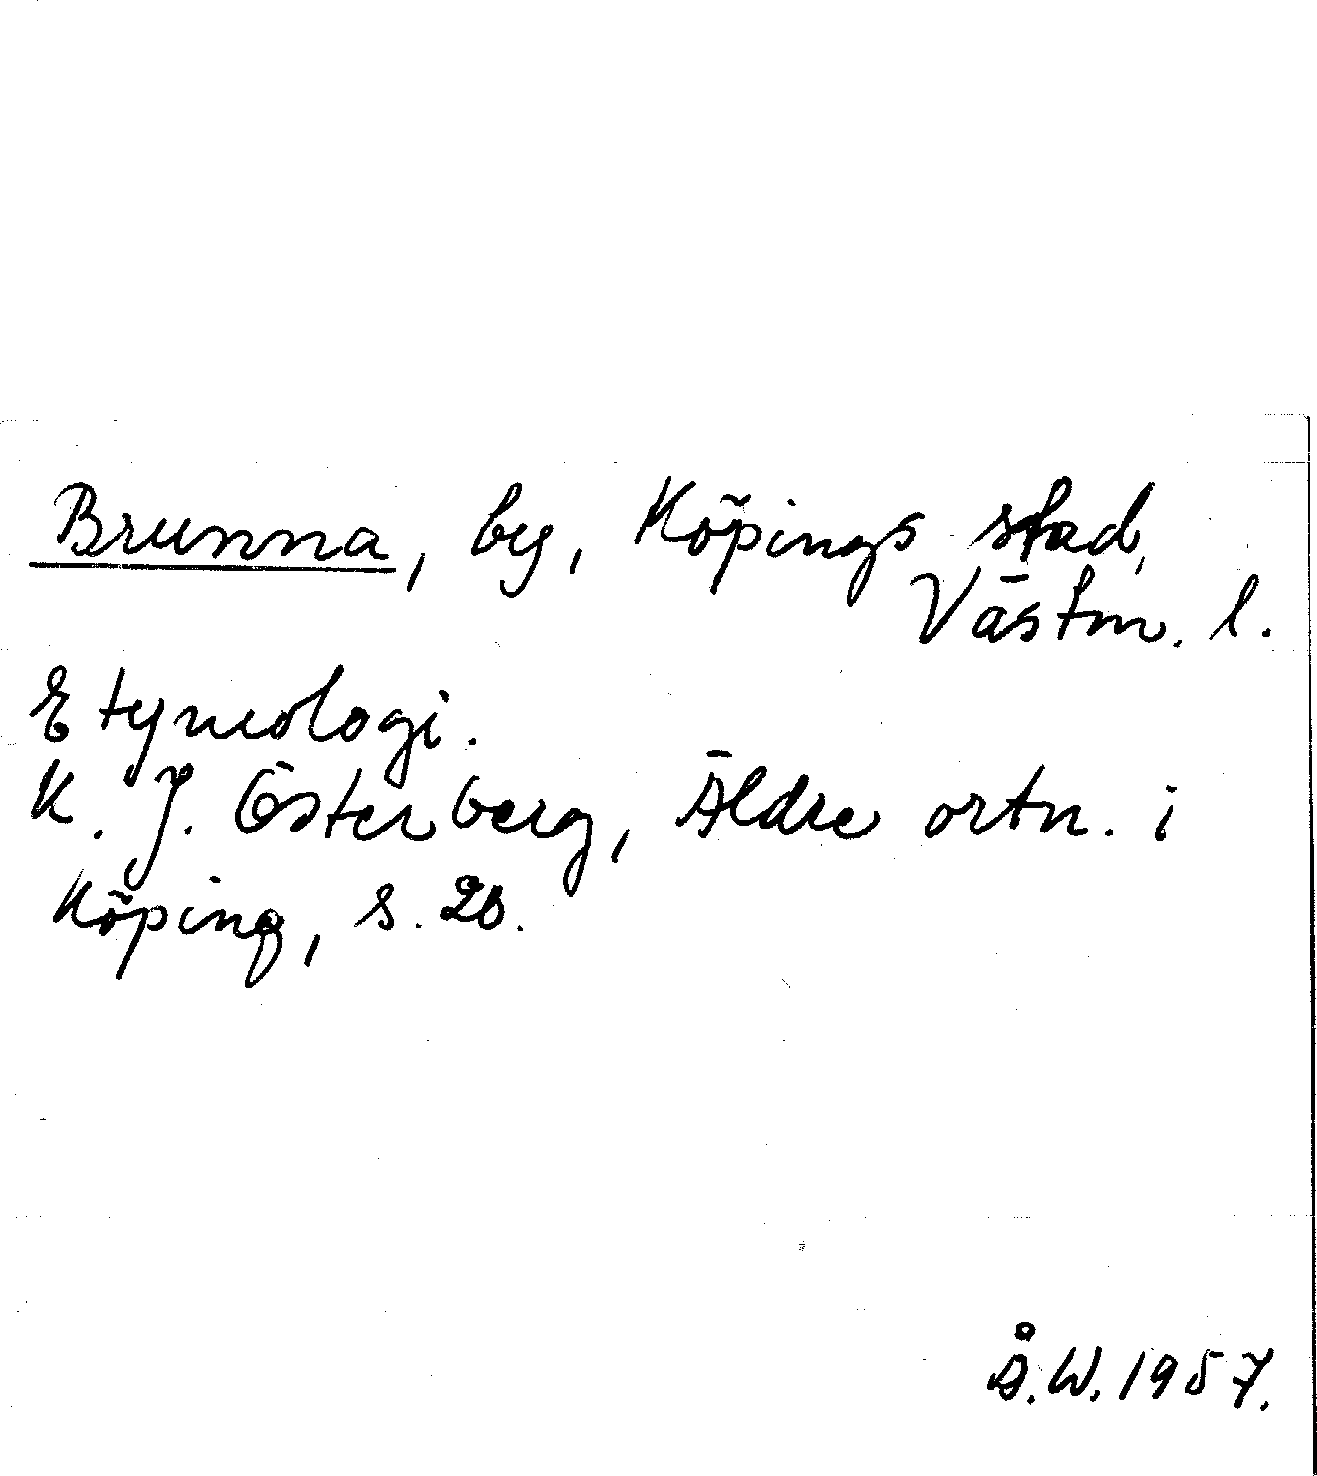 Brunna, by, Köpings stad,
Västm. l.
Etymologi.
K. J. Österberg, Äldre ortn. i
Köping, s. 20.
Å.W. 1957.